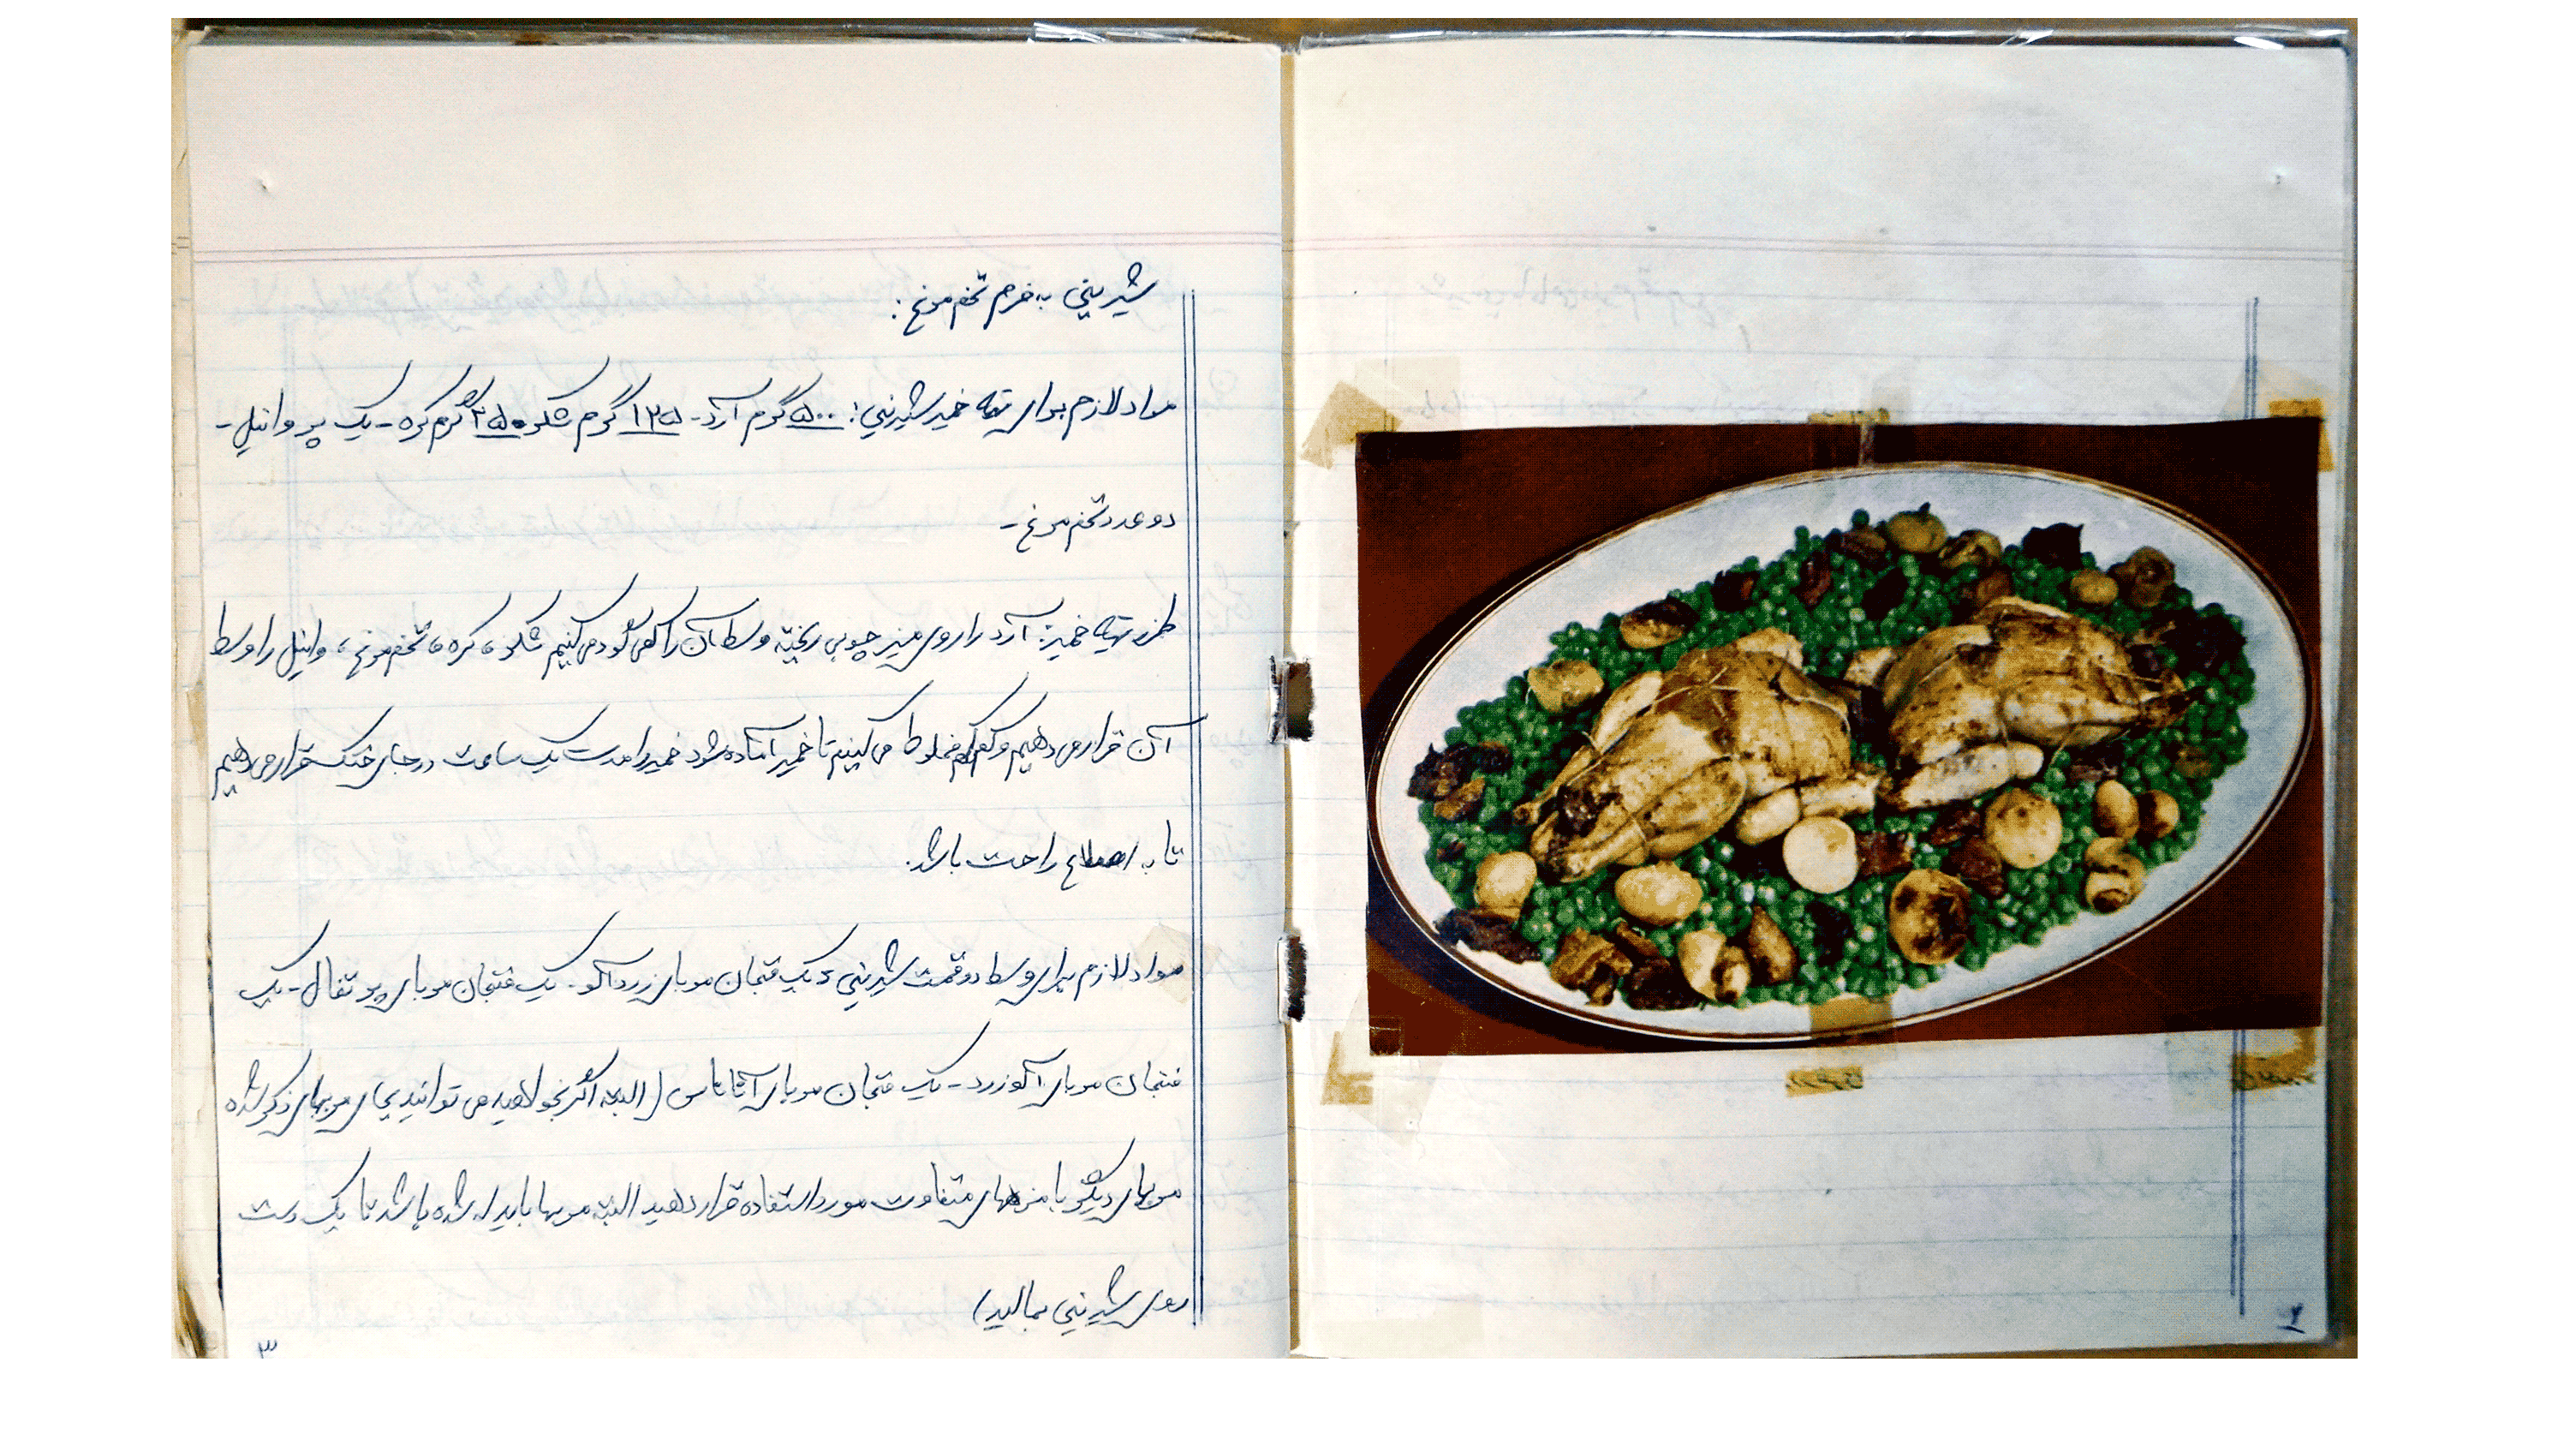 شیرینی به فرم تخم مرغ :
مواد لازم برای تهیه خمیر شیرینی: ۵۰۰ گرم آرد - ۱۲۵ گرم شکر - ۲۵۰ گرم کره - یک پر وانیل -
دو عدد تخم مرغ -
طرز تهیه خمیر: آرد را روی میز چوبی ریخته وسط آن را کمی گود می کنیم شکر، کره، تخم مرغ، وانیل را وسط
آن قرار می دهیم و کم کم مخلوط می کنیم تا خمیر آماده شود خمیر را مدت یک ساعت در جای خنک قرار می دهیم
تا به اصطلاح راحت باشد.
مواد لازم برای وسط دو قسمت شیرینی: یک فنجان مربای زردآلو - یک فنجان مربای پرتقال - یک
فنجان مربای آلو زرد - یک فنجان مربای آناناس (البته اگر بخواهید می توانید بجای مربهای ذکر شده
مربهای دیگر با مزه های متفاوت مورد استفاده قرار دهید البته مربها باید له شده باشد تا یک دست
روی شیرینی بمالید)
۳